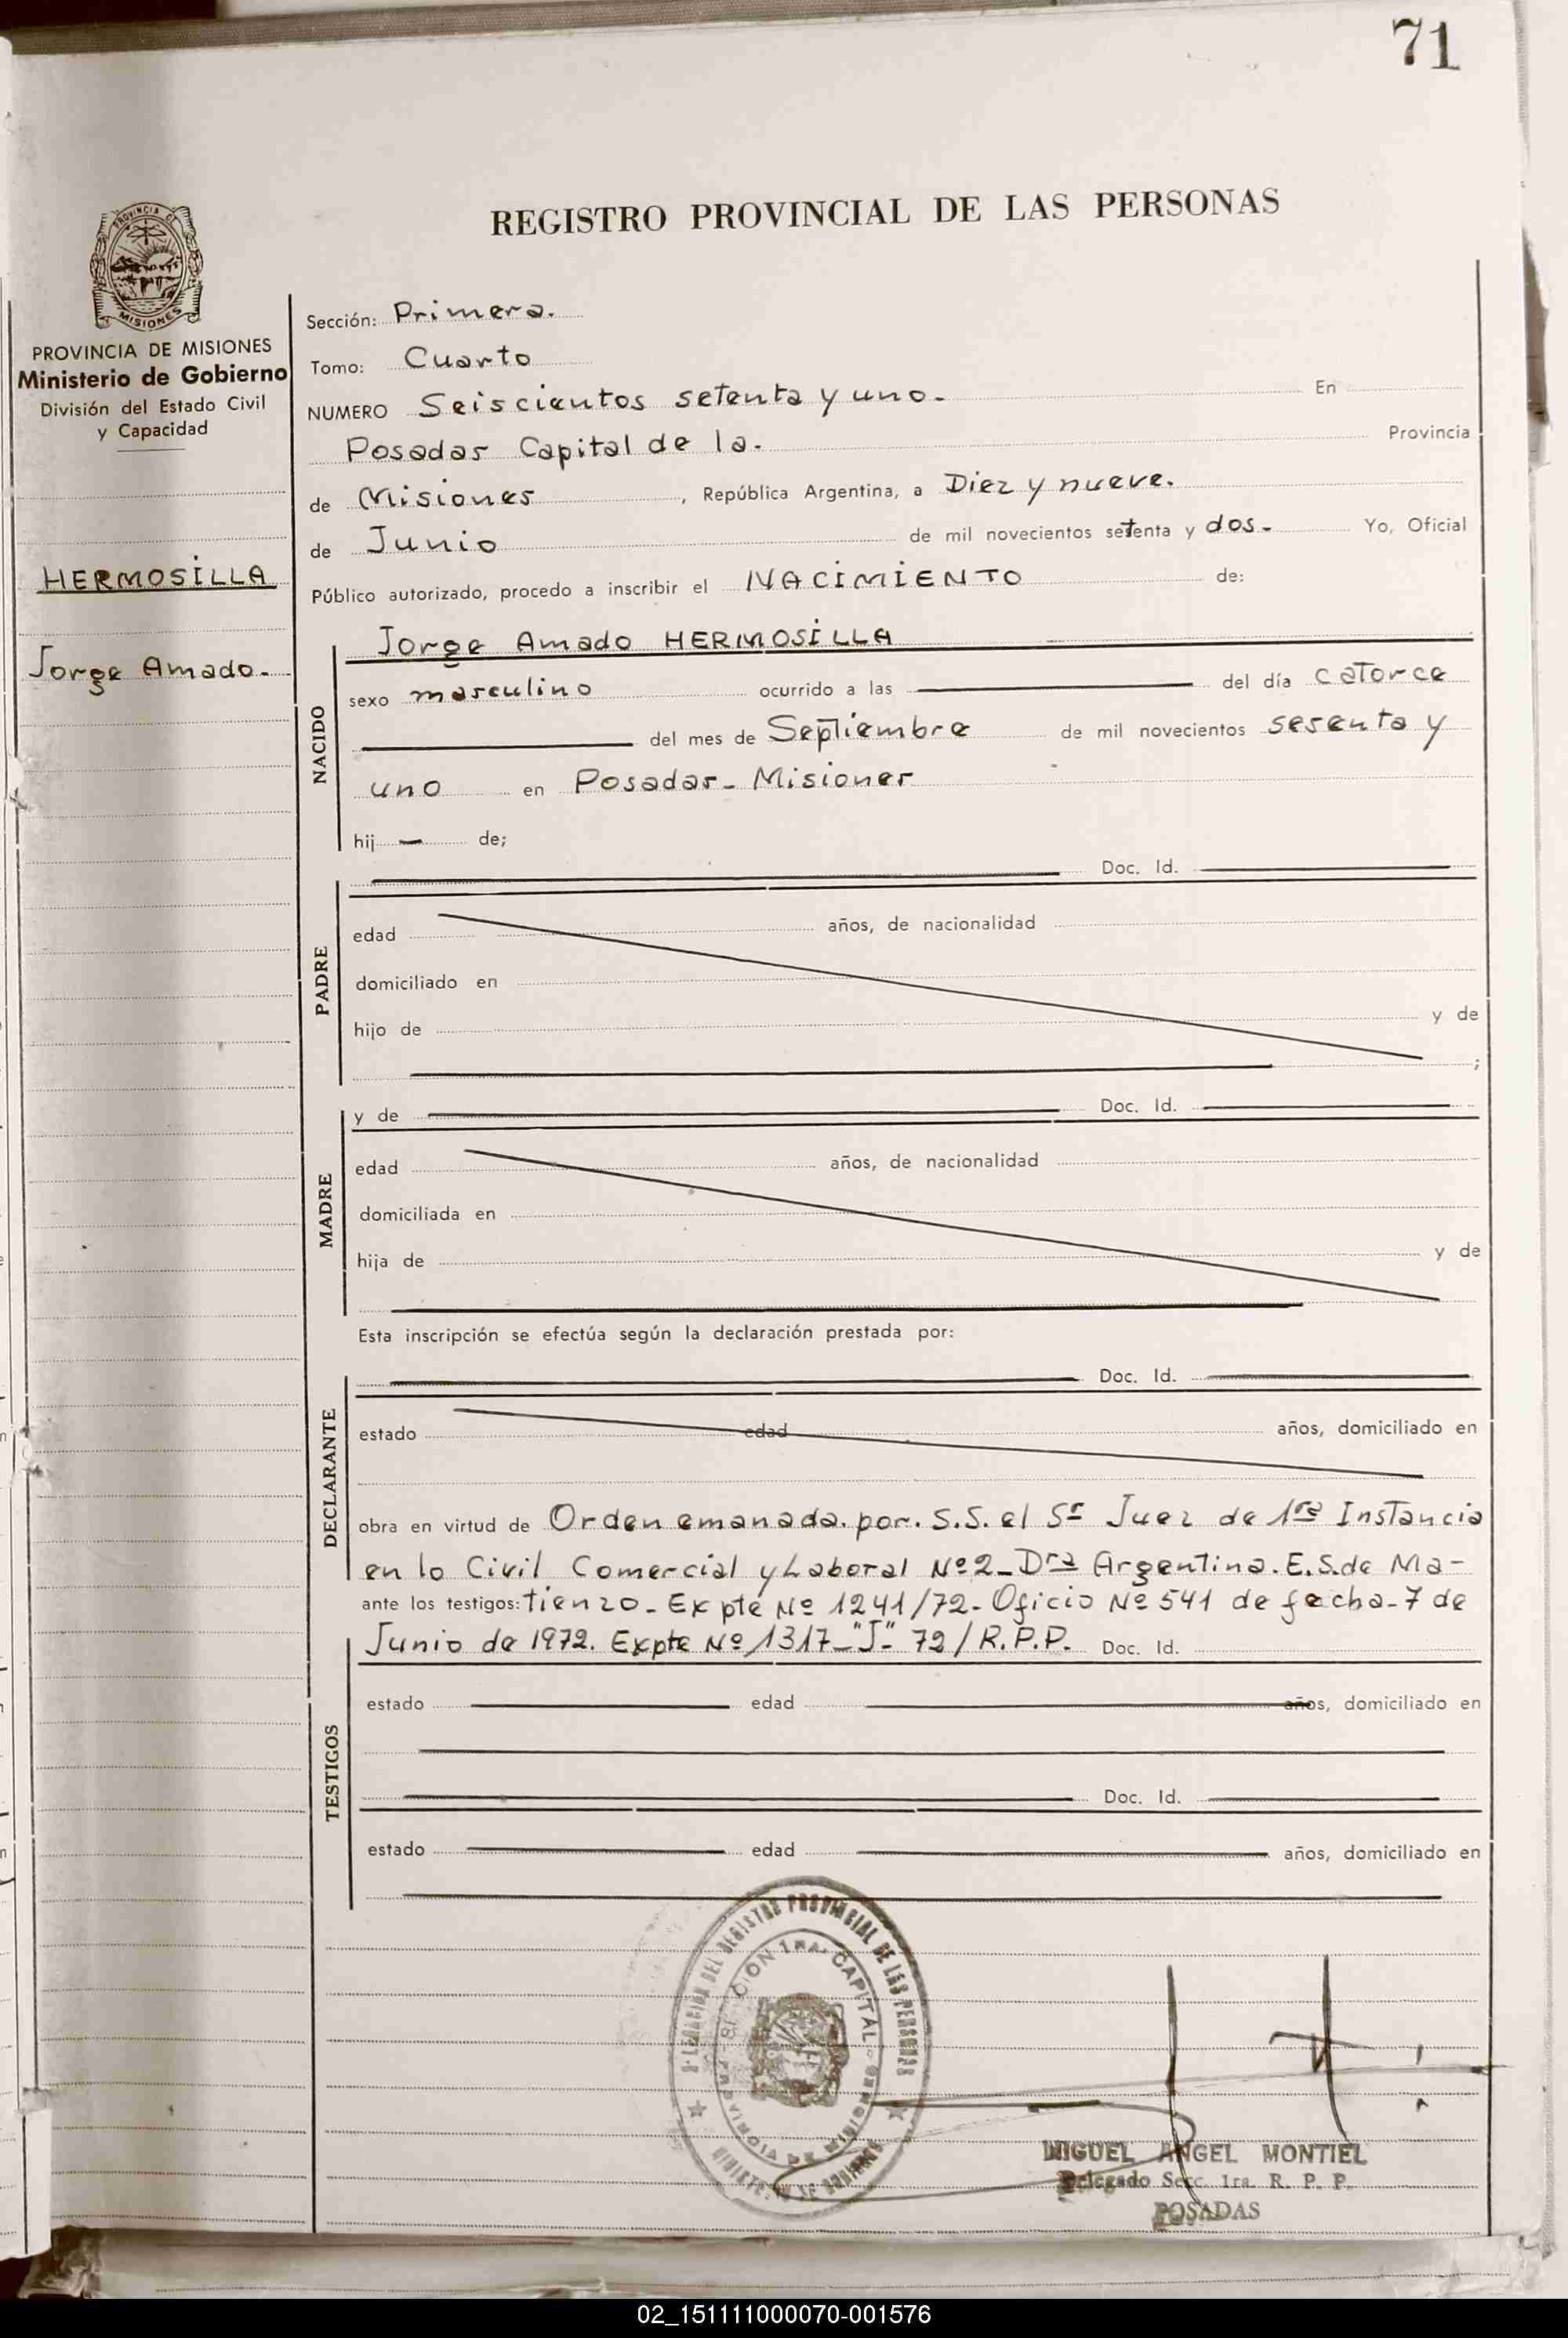 71
REGISTRO PROVINCIAL DE LAS PERSONAS
PROVINCIA DE
MISIONES
PROVINCIA DE MISIONES
Ministerio de Gobierno
División del Estado Civil
y Capacidad
HERMOSILLA
Jorge Amado.
Sección: Primera.
Tomo: Cuarto
NUMERO Seiscientos setenta y uno. En
Posadas Capital de la. Provincia
de Misiones, República Argentina, a Diez y nueve.
de Junio de mil novecientos setenta y dos. Yo, Oficial
Público autorizado, procedo a inscribir el NACIMIENTO de:
NACIDO
Jorge Amado HERMOSILLA
sexo masculino ocurrido a las del día catorce
del mes de Septiembre de mil novecientos sesenta y
uno en Posadas - Misiones
hij de;
PADRE
Doc. Id.
edad años, de nacionalidad
domiciliado en
hijo de y de
;
MADRE
y de Doc. Id.
edad años, de nacionalidad
domiciliada en
hija de y de
Esta inscripción se efectúa según la declaración prestada por:
DECLARANTE
Doc. Id.
estado edad años, domiciliado en
obra en virtud de Orden emanada. por. S.S. el Sr Juez de 1ra Instancia
en lo Civil Comercial y Laboral Nº 2 - Dra Argentina. E.S. de Ma-
ante los testigos: tienzo - Expte Nº 1241/72 - Oficio Nº 541 de fecha - 7 de
Junio de 1972. Expte Nº 1317 - "J" - 72 / R.P.P. Doc. Id.
TESTIGOS
estado edad años, domiciliado en
Doc. Id.
estado edad años, domiciliado en
DEL REGISTRO PROVINCIAL DE LAS PERSONAS
1ra. CAPITAL
PROVINCIA DE MISIONES
MIGUEL ANGEL MONTIEL
Delegado Secc. 1ra. R. P. P.
POSADAS
02_151111000070-001576